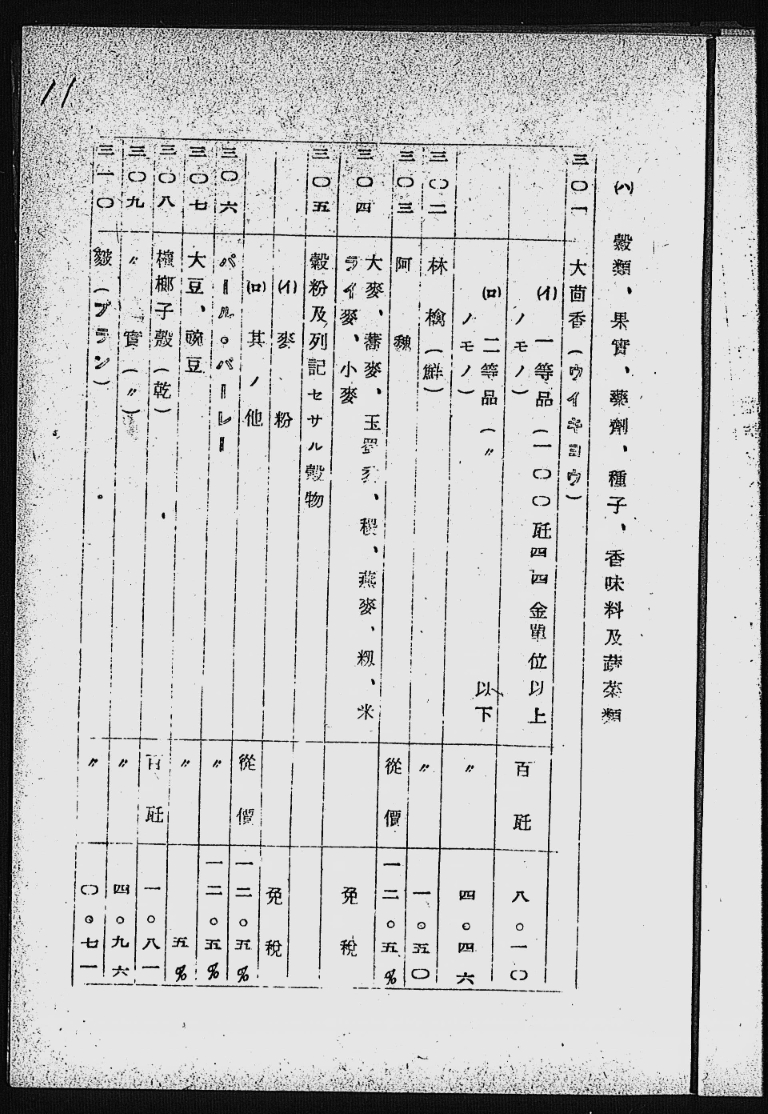 11
(ハ) 穀類、果實、藥劑、種子、香味料及蔬菜類
三〇一 大茴香(ウイキヨウ)
(イ) 一等品(一〇〇瓩四四金單位以上ノモノ) 百瓩 八。一〇
(ロ) 二等品(〃 以下ノモノ) 〃 四。四六
三〇二 林檎(鮮) 〃 一。五〇
三〇三 阿魏 從價 一二。五%
三〇四 大麥、蕎麥、玉蜀黍、稷、燕麥、籾、米
ライ麥、小麥 免稅
三〇五 穀粉及列記セサル穀物
(イ) 麥粉 免稅
(ロ) 其ノ他 從價 一二。五%
三〇六 パール。バーレー 〃 一二。五%
三〇七 大豆、豌豆 〃 五%
三〇八 檳榔子殼(乾) 百瓩 一。八一
三〇九 〃 實(〃) 〃 四。九六
三一〇 麩(ブラン) 〃 〇。七一